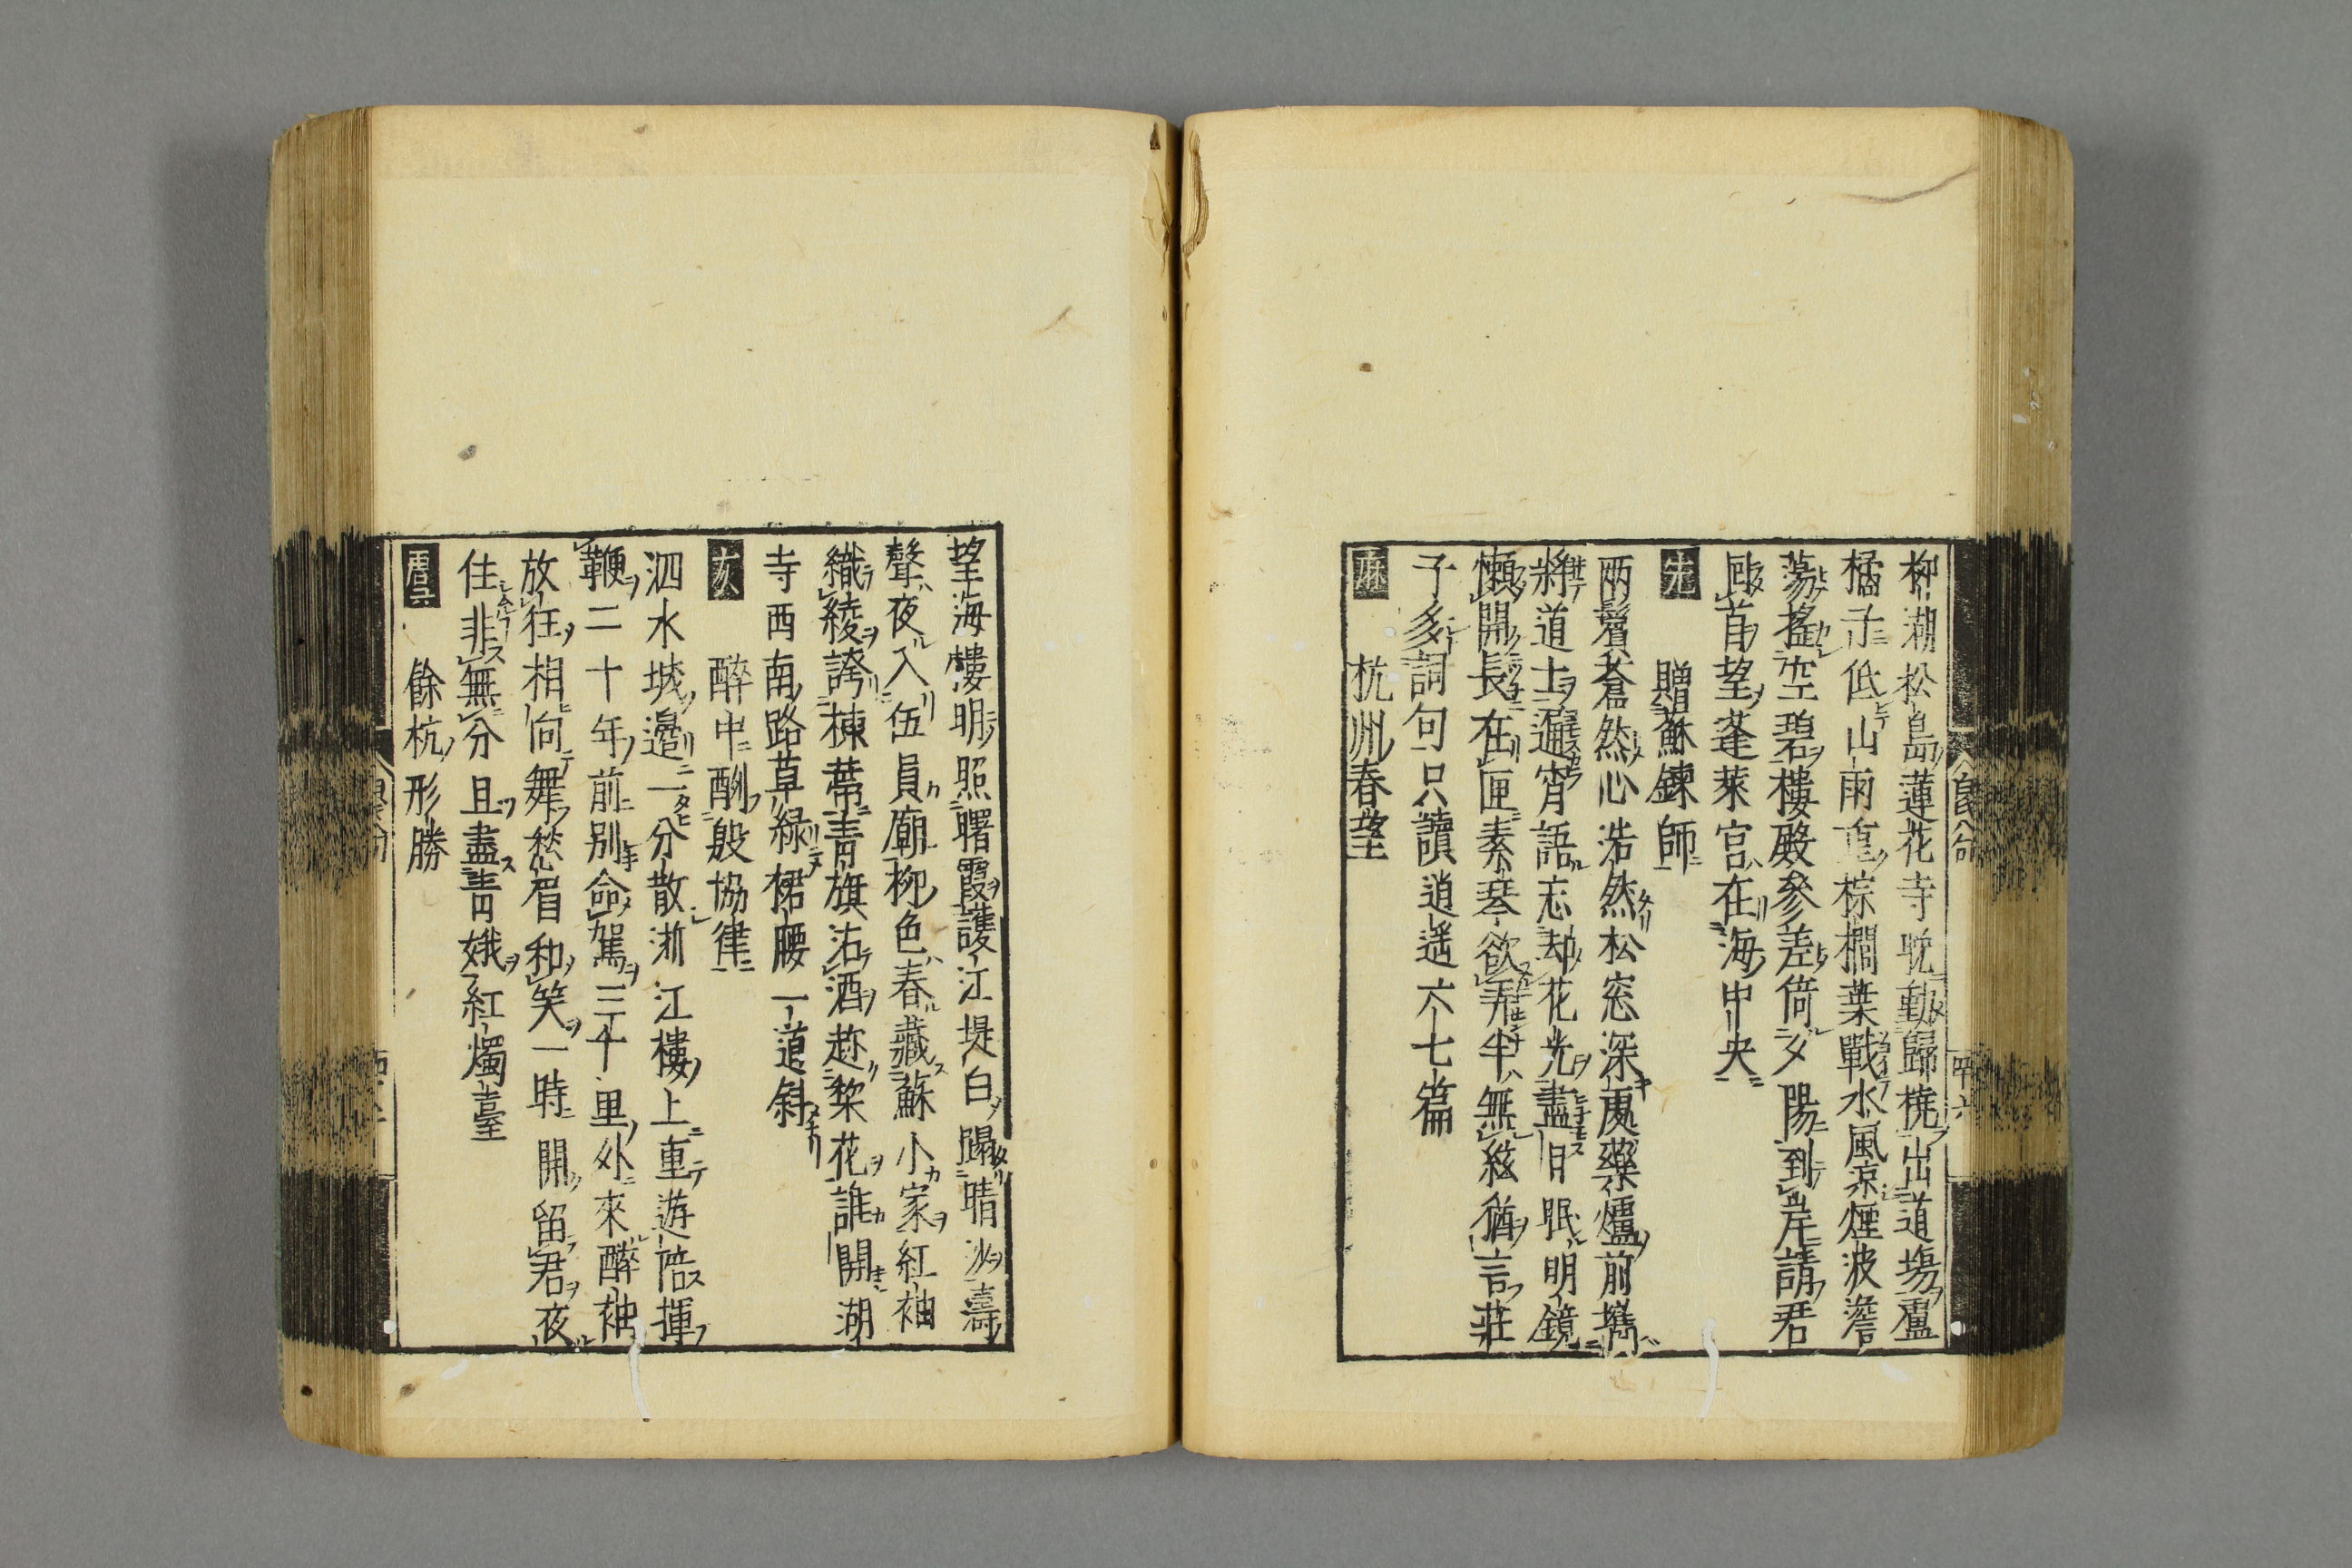 柳湖松島蓮花寺晩動歸橈出道塲盧
橘子低山雨重棕櫚葉戰水風凉煙波澹
蕩搖空碧樓殿參差倚夕陽到岸請君
囘首望蓬萊宮在海中央
先 贈蘇鍊師
兩鬢蒼然心浩然松窓深處藥爐前攜
將道士通宵語忘却花光盡日眠明鏡
懶開長在匣素琴欲弄半無絃猶言莊
子多詞句只讀逍遙六七篇
麻 杭州春望
望海樓明照曙霞護江堤白蹋晴沙濤
聲夜入伍員廟柳色春藏蘇小家紅袖
織綾誇柿蔕青旗沽酒趂棃花誰開湖
寺西南路草綠裙腰一道斜
灰 醉中酬殷協律
泗水城邉一分散浙江樓上重遊陪揮
鞭二十年前別命駕三千里外來醉袖
放狂相向舞愁眉和笑一時開留君夜
住非無分且盡青娥紅燭臺
虞 餘杭形勝